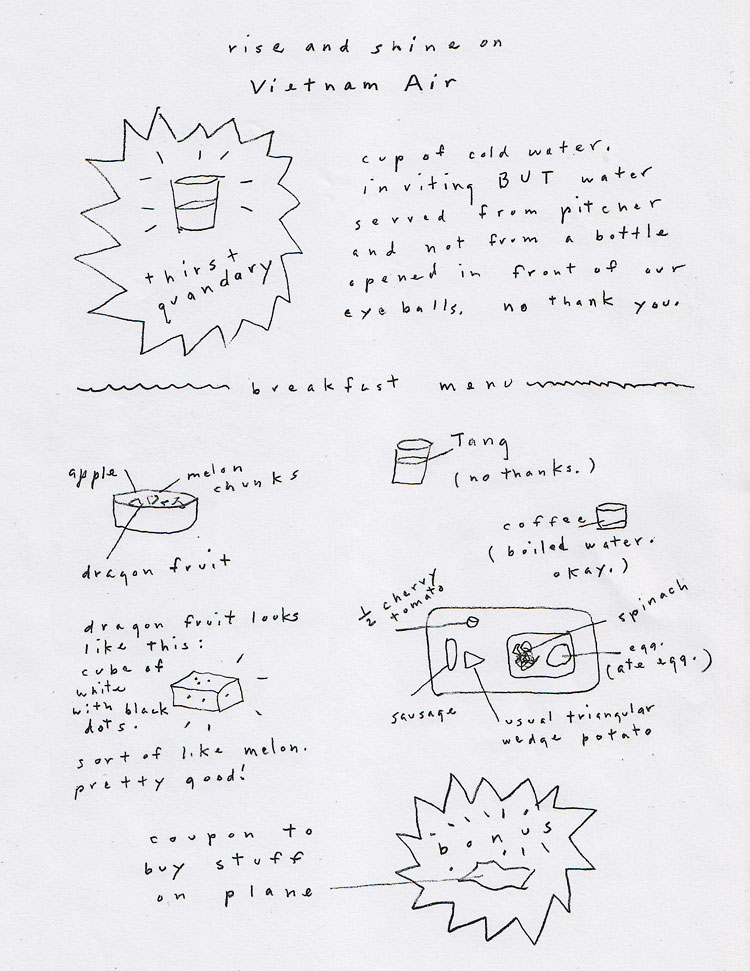 rise and shine on
Vietnam Air
thirst
quandary
cup of cold water.
inviting BUT water
served from pitcher
and not from a bottle
opened in front of our
eyeballs. no thank you.
breakfast menu
apple
melon
chunks
dragon fruit
Tang
(no thanks.)
coffee
(boiled water.
okay.)
dragon fruit looks
like this:
cube of
white
with black
dots.
sort of like melon.
pretty good!
1/2 cherry
tomato
spinach
egg.
(ate egg.)
sausage
usual triangular
wedge potato
coupon to
buy stuff
on plane
bonus